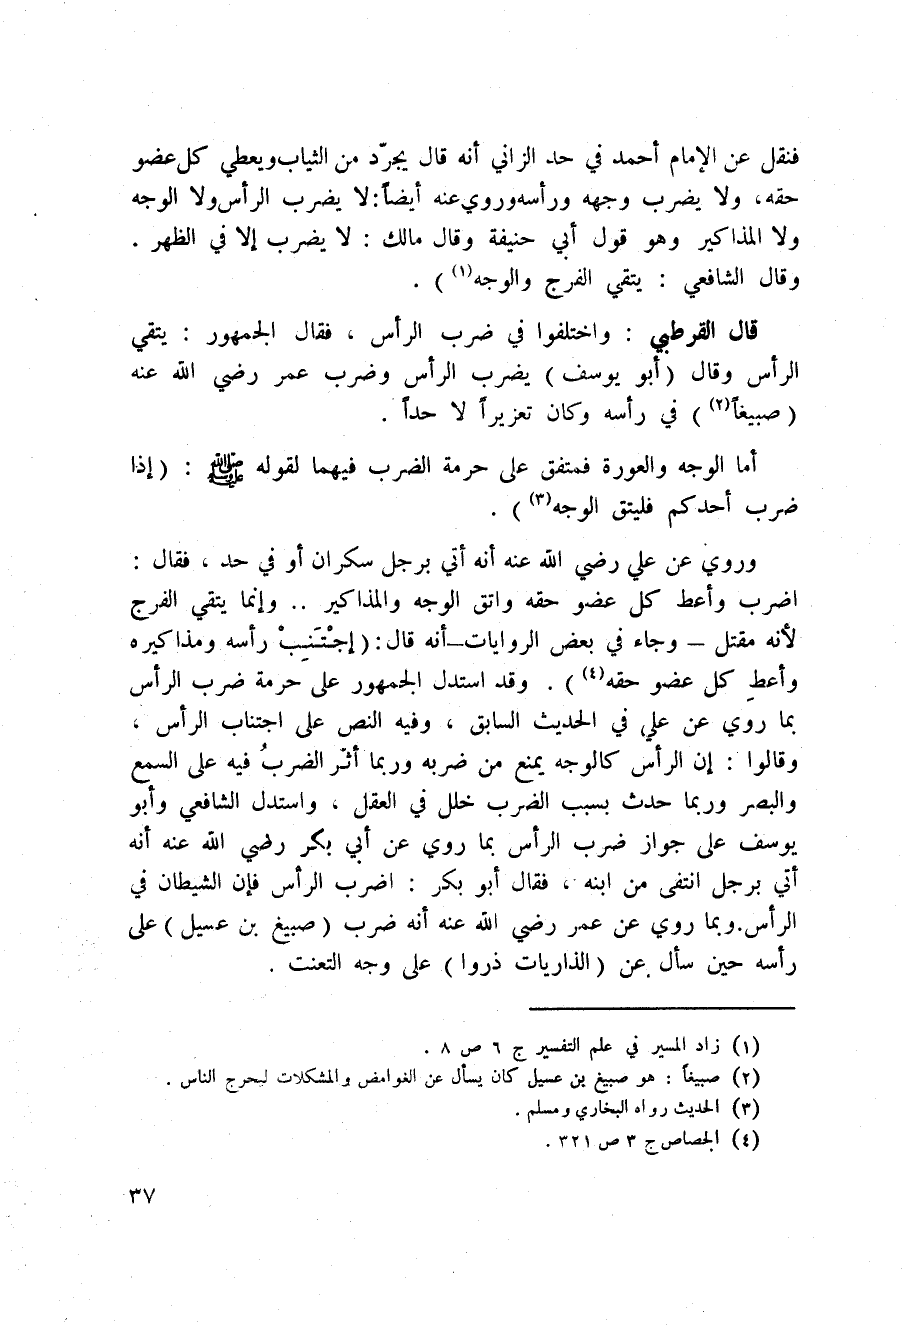 فنقل عن الإمام أحمد في حد الزاني أنه قال يجرّد من الثياب ويعطي كل عضو
حقه، ولا يضرب وجهه ورأسه وروي عنه أيضاً: لا يضرب الرأس ولا الوجه
ولا المذاكير وهو قول أبي حنيفة وقال مالك : لا يضرب إلا في الظهر .
وقال الشافعي : يتقي الفرج والوجه(١) ) .
قال القرطبي : واختلفوا في ضرب الرأس ، فقال الجمهور : يتقي
الرأس وقال ( أبو يوسف ) يضرب الرأس وضرب عمر رضي الله عنه
( صبيغاً(٢) ) في رأسه وكان تعزيراً لا حداً .
أما الوجه والعورة فمتفق على حرمة الضرب فيهما لقوله ﷺ : ( إذا
ضرب أحدكم فليتق الوجه(٣) ) .
وروي عن علي رضي الله عنه أنه أتي برجل سكران أو في حد ، فقال :
اضرب وأعط كل عضو حقه واتق الوجه والمذاكير .. وإنما يتقي الفرج
لأنه مقتل – وجاء في بعض الروايات–أنه قال: ( إجْتَنِبْ رأسه ومذاكيره
وأعطِ كل عضو حقه(٤) ) . وقد استدل الجمهور على حرمة ضرب الرأس
بما روي عن علي في الحديث السابق ، وفيه النص على اجتناب الرأس ،
وقالوا : إن الرأس كالوجه يمنع من ضربه وربما أثّر الضربُ فيه على السمع
والبصر وربما حدث بسبب الضرب خلل في العقل ، واستدل الشافعي وأبو
يوسف على جواز ضرب الرأس بما روي عن أبي بكر رضي الله عنه أنه
أتي برجل انتفى من ابنه ، فقال أبو بكر : اضرب الرأس فإن الشيطان في
الرأس.وبما روي عن عمر رضي الله عنه أنه ضرب ( صبيغ بن عسيل ) على
رأسه حين سأل عن ( الذاريات ذروا ) على وجه التعنت .
(١) زاد المسير في علم التفسير ج ٦ ص ٨ .
(٢) صبيغاً : هو صبيغ بن عسيل كان يسأل عن الغوامض والمشكلات ليحرج الناس .
(٣) الحديث رواه البخاري ومسلم .
(٤) الجصاص ج ٣ ص ٣٢١ .
٣٧